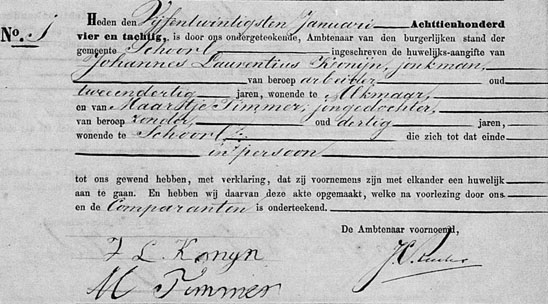 N°. 1
Heden den Vijfentwintigsten Januari Achttienhonderd
vier en tachtig, is door ons ondergeteekende, Ambtenaar van den burgerlijken stand der
gemeente Schoorl ingeschreven de huwelijks-aangifte van
Johannes Laurentius Kronijn, jonkman,
van beroep arbeider oud
tweeendertig jaren, wonende te Alkmaar,
en van Maartje Timmer, jongedochter,
van beroep zonder, oud dertig jaren,
wonende te Schoorl, die zich tot dat einde
in persoon
tot ons gewend hebben, met verklaring, dat zij voornemens zijn met elkander een huwelijk
aan te gaan. En hebben wij daarvan deze akte opgemaakt, welke na voorlezing door ons
en de Comparanten is onderteekend.
De Ambtenaar voornoemd,
J L Kronyn
M Timmer